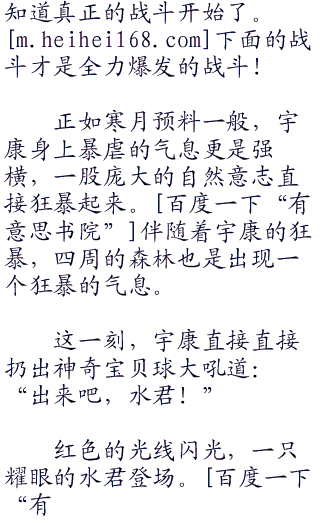 知道真正的战斗开始了。
[m.heihei168.com]下面的战
斗才是全力爆发的战斗！
正如寒月预料一般，宇
康身上暴虐的气息更是强
横，一股庞大的自然意志直
接狂暴起来。[百度一下“有
意思书院”]伴随着宇康的狂
暴，四周的森林也是出现一
个狂暴的气息。
这一刻，宇康直接直接
扔出神奇宝贝球大吼道：
“出来吧，水君！”
红色的光线闪光，一只
耀眼的水君登场。[百度一下
“有